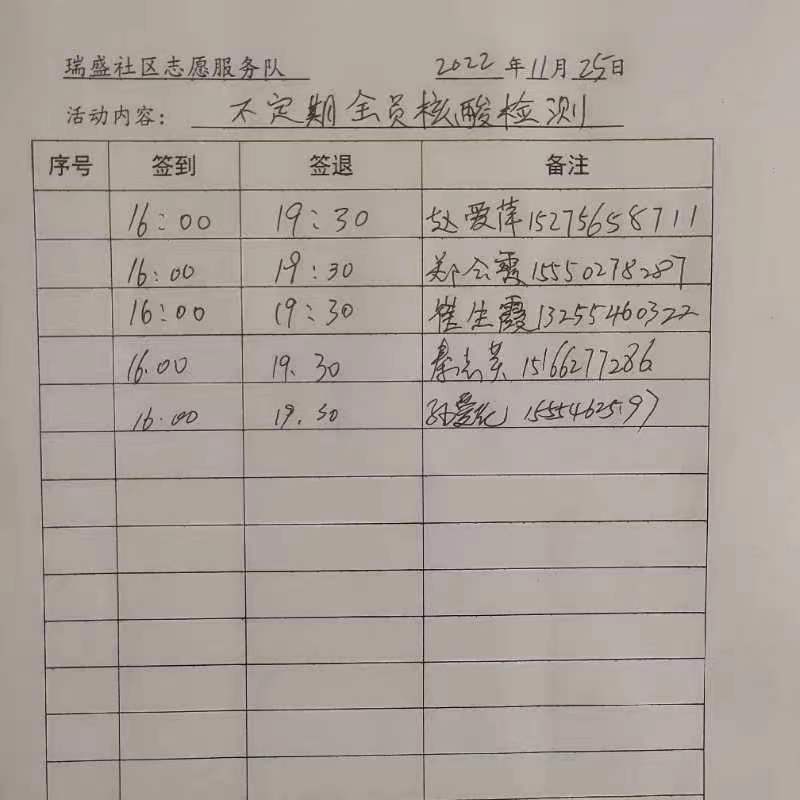 瑞盛社区志愿服务队 2022年11月25日
活动内容: 不定期全员核酸检测
序号 签到 签退 备注
16:00 19:30 赵爱萍15275658711
16:00 19:30 郑会霞15550278287
16:00 19:30 崔生霞13255460322
16.00 19.30 秦志英 15166277286
16.00 19.30 孙爱 15554625197